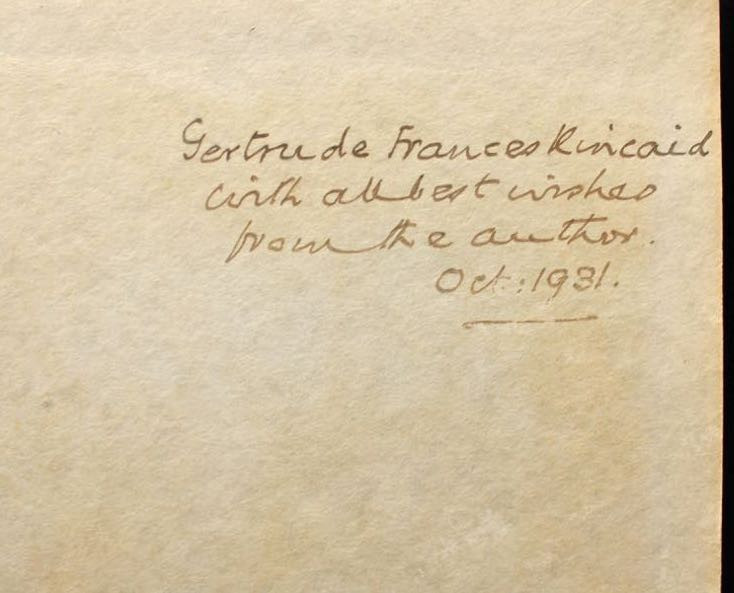 Gertrude Frances Kincaid
with all best wishes
from the author.
Oct: 1931.